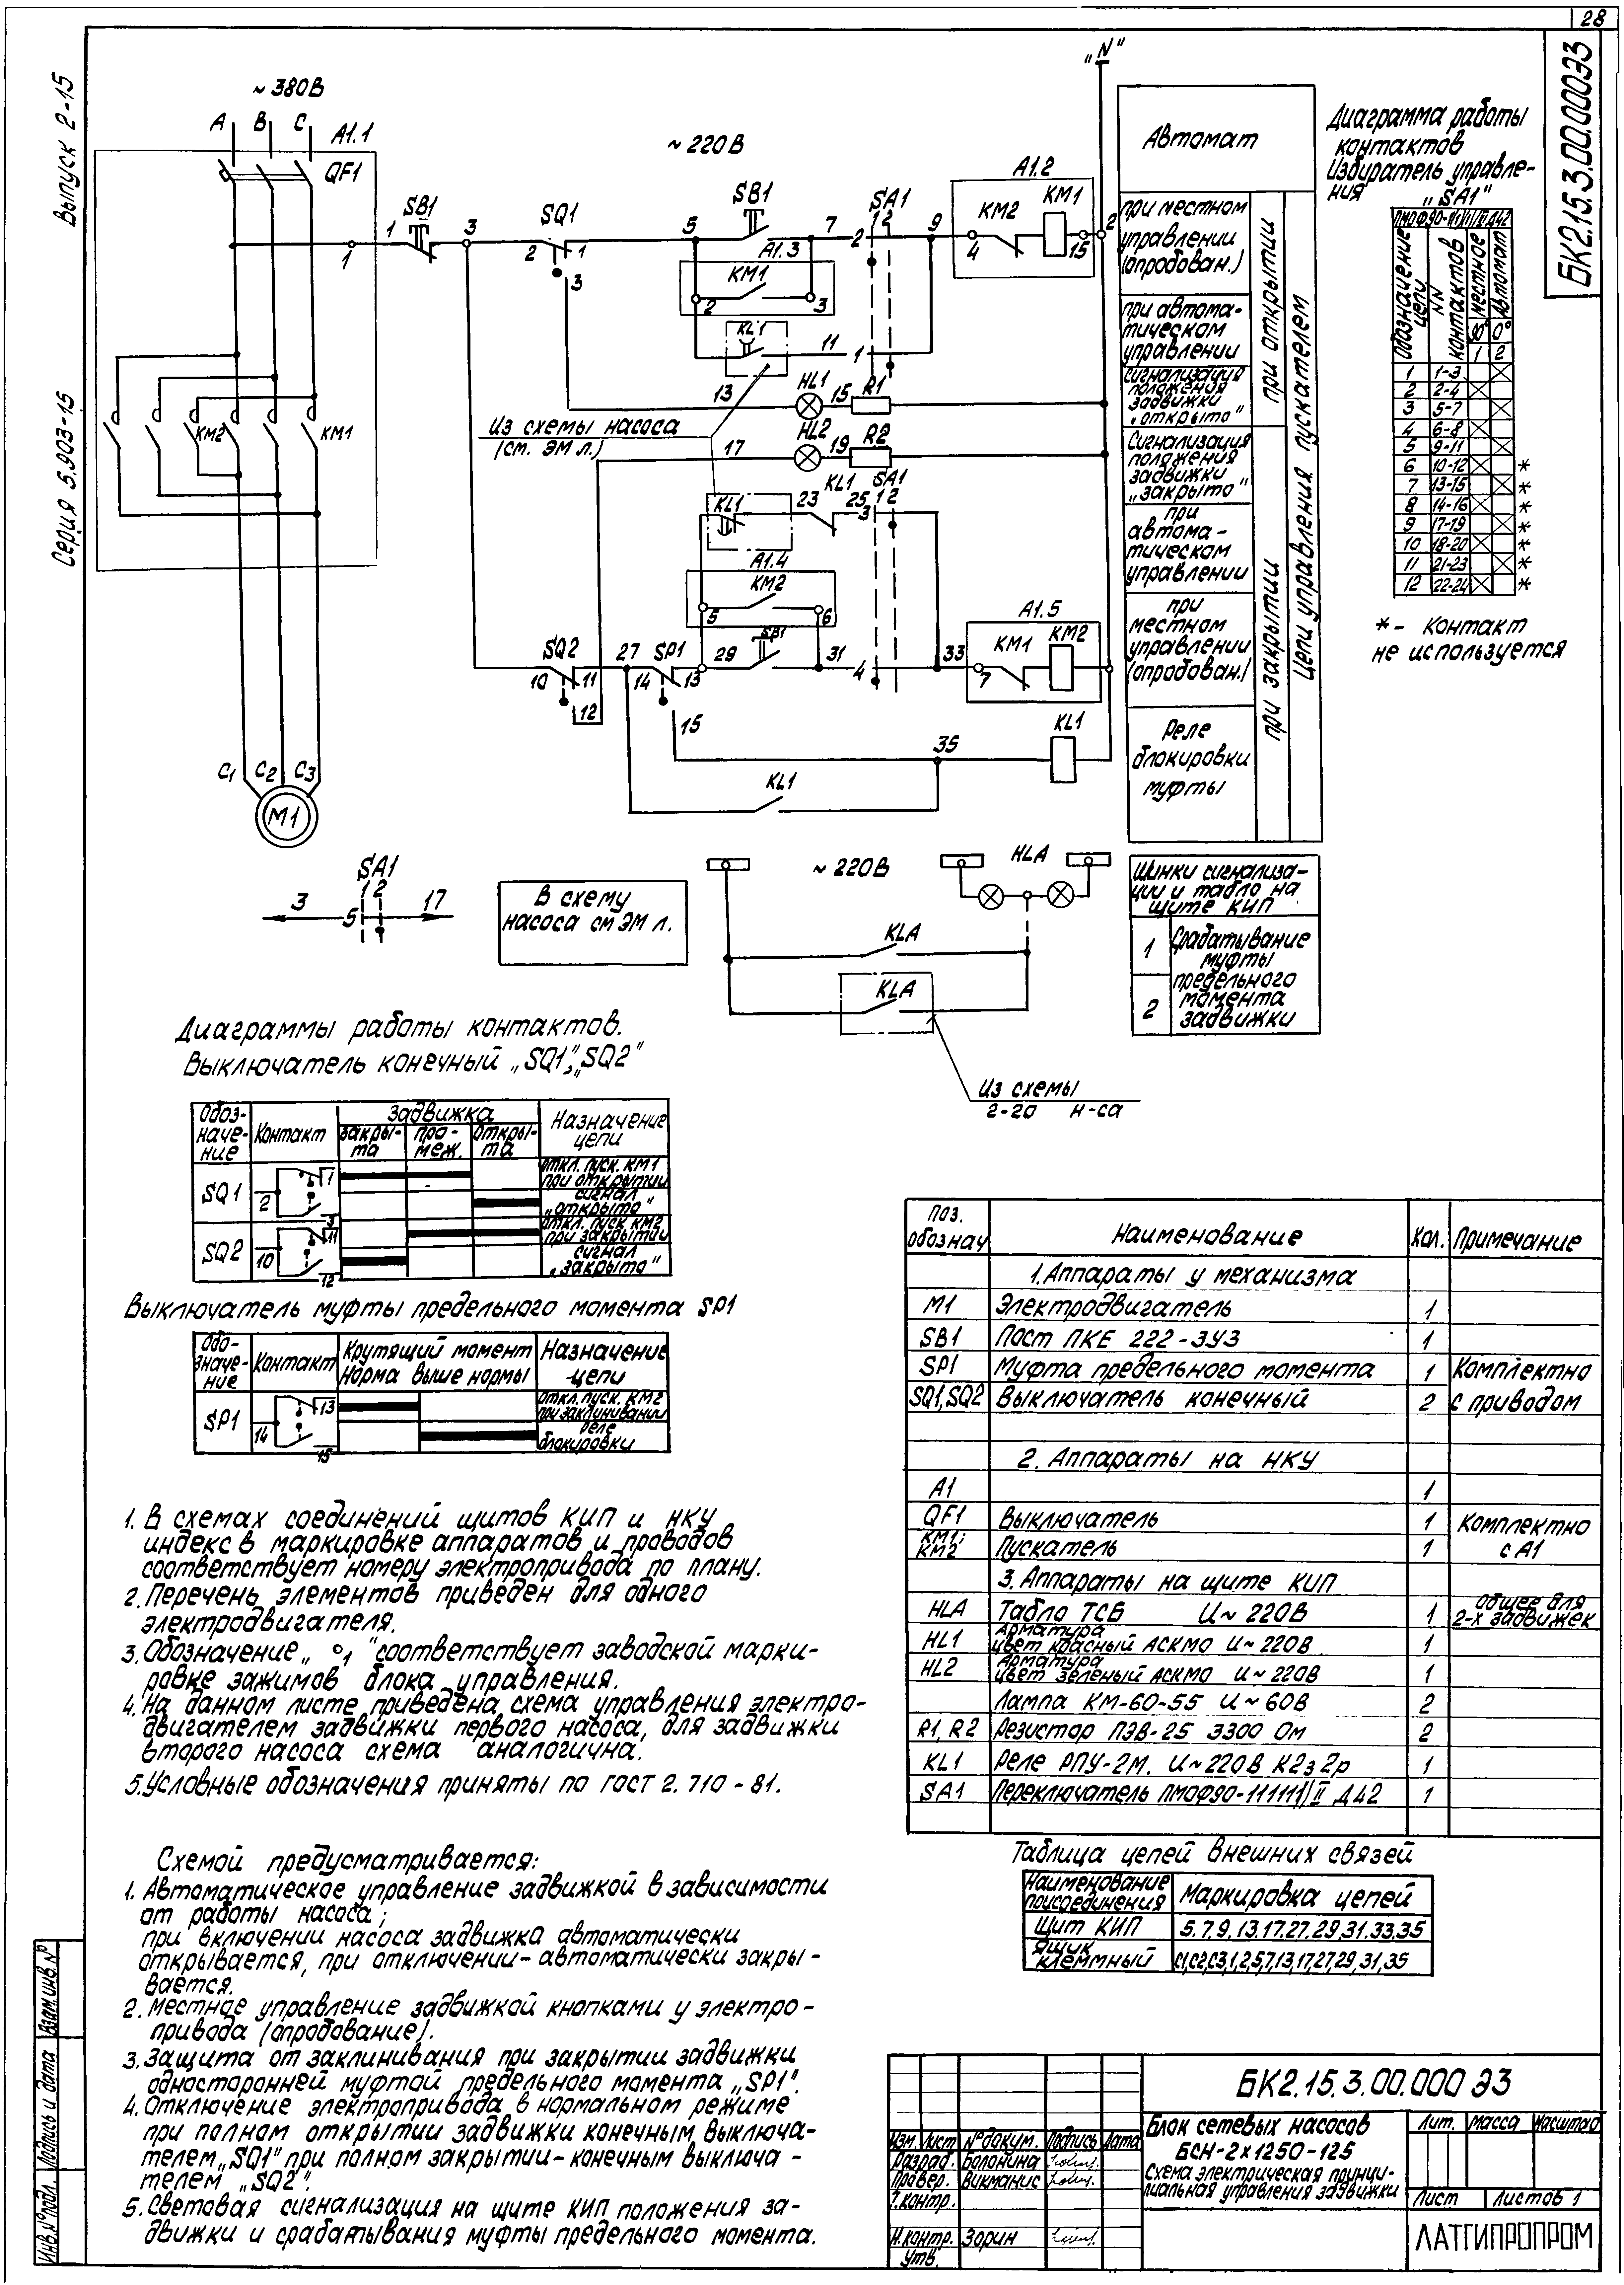 28
БК2.15.3.00.000ЭЗ
Выпуск 2-15
Серия 5.903-15
~380В
А В С
А1.1
QF1
КМ2
КМ1
С1 С2 С3
М1
~220В
"N"
1
1
SB1
3
SQ1
2 1
3
5
SB1
7
2
SA1
1 2
9
А1.2
КМ2
КМ1
4
15
2
А1.3
КМ1
2
3
KL1
11
1
13
HL1
15
R1
Из схемы насоса
(см. ЭМ л.)
17
HL2
19
R2
KL1
23
KL1
25
3
SA1
1 2
А1.4
КМ2
5
6
SB1
SQ2
10 11
12
27
SP1
14 13
15
29
31
4
33
А1.5
КМ1
КМ2
7
35
KL1
KL1
Автомат
при местном
управлении
(опробован.)
при автома-
тическом
управлении
сигнализация
положения
задвижки
"открыто"
Сигнализация
положения
задвижки
"закрыто"
при
автома-
тическом
управлении
при
местном
управлении
(опробован.)
Реле
блокировки
муфты
при открытии
при закрытии
Цепи управления пускателем
Диаграмма работы
контактов
Избиратель управле-
ния
"SA1"
ПМОФ90-111111/II Д42
Обозначение цепи
NN контактов
местное
Автомат
90° 0°
1 2
1 1-3
2 2-4
3 5-7
4 6-8
5 9-11
6 10-12 *
7 13-15 *
8 14-16 *
9 17-19 *
10 18-20 *
11 21-23 *
12 22-24 *
*- контакт
не используется
SA1
1 2
3
5
17
В схему
насоса см ЭМ л.
~220В
HLA
KLA
KLA
Из схемы
2-20 н-са
Шинки сигнализа-
ции и табло на
щите КИП
1
2
Срабатывание
муфты
предельного
момента
задвижки
Диаграммы работы контактов.
Выключатель конечный "SQ1", "SQ2"
Обоз-
наче-
ние
Контакт
Задвижка
закры-
та
про-
меж.
откры-
та
Назначение
цепи
SQ1
2
1
3
откл. пуск. КМ1
при открытии
сигнал
"открыто"
SQ2
10
11
12
откл. пуск КМ2
при закрытии
сигнал
"закрыто"
Выключатель муфты предельного момента SP1
Обо-
значе-
ние
Контакт
Крутящий момент
Норма Выше нормы
Назначение
цепи
SP1
14
13
15
откл. пуск. КМ2
при заклинивании
реле
блокировки
1. В схемах соединений щитов КИП и НКУ
индекс в маркировке аппаратов и проводов
соответствует номеру электропривода по плану.
2. Перечень элементов приведен для одного
электродвигателя.
3. Обозначение "°1" соответствует заводской марки-
ровке зажимов блока управления.
4. На данном листе приведена схема управления электро-
двигателем задвижки первого насоса, для задвижки
второго насоса схема аналогична.
5. Условные обозначения приняты по гост 2.710-81.
Схемой предусматривается:
1. Автоматическое управление задвижкой в зависимости
от работы насоса;
при включении насоса задвижка автоматически
открывается, при отключении-автоматически закры-
вается.
2. Местное управление задвижкой кнопками у электро-
привода (опробование).
3. Защита от заклинивания при закрытии задвижки
односторонней муфтой предельного момента "SP1".
4. Отключение электропривода в нормальном режиме
при полном открытии задвижки конечным выключа-
телем "SQ1" при полном закрытии-конечным выключа-
телем "SQ2".
5. Световая сигнализация на щите КИП положения за-
движки и срабатывания муфты предельного момента.
Поз. обознач Наименование Кол. Примечание
1. Аппараты у механизма
М1 Электродвигатель 1
SB1 Пост ПКЕ 222-3У3 1
SP1 Муфта предельного момента 1 Комплектно
SQ1, SQ2 Выключатель конечный 2 с приводом
2. Аппараты на НКУ
А1 1
QF1 Выключатель 1 Комплектно
КМ1; КМ2 Пускатель 1 с А1
3. Аппараты на щите КИП
HLA Табло ТСБ U~220В 1 общее для 2-х задвижек
HL1 Арматура цвет красный АСКМО U~220В 1
HL2 Арматура цвет зеленый АСКМО U~220В 1
Лампа КМ-60-55 U~60В 2
R1, R2 Резистор ПЭВ-25 3300 Ом 2
KL1 Реле РПУ-2М. U~220В К2з2р 1
SA1 Переключатель ПМОФ90-111111/II Д42 1
Таблица цепей внешних связей
Наименование
присоединения
Маркировка цепей
Щит КИП 5.7,9,13.17.27.29,31.33,35
Ящик
клеммный С1,С2,С3,1,2,5,7,13,17,27,29,31,35
БК2.15.3.00.000 ЭЗ
Изм. Лист № докум. Подпись Дата
Разраб. Болонина
Провер. Викманис
Т.контр.
Н.контр. Зорин
Утв.
Блок сетевых насосов
БСН-2х1250-125
Схема электрическая принци-
пиальная управления задвижки
Лит. Масса Масштаб
Лист Листов 1
ЛАТГИПРОПРОМ
Взам.инв.№
Подпись и дата
Инв.№ подл.